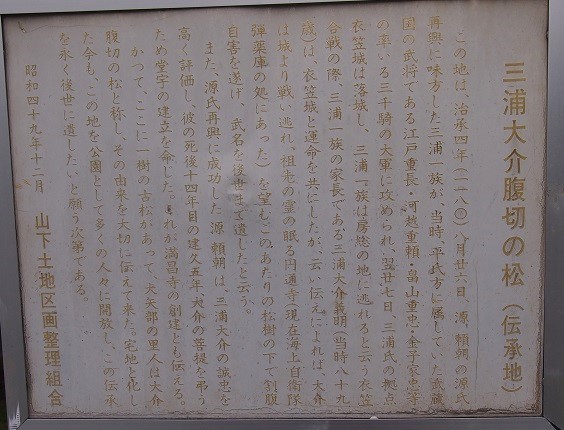 三浦大介腹切の松(伝承地)
この地は、治承四年(一一八〇)八月廿六日、源頼朝の源氏
再興に味方した三浦一族が、当時、平氏方に属していた武蔵
国の武将である江戸重長・河越重頼・畠山重忠・金子家忠等
の率いる三千騎の大軍に攻められ、翌廿七日、三浦氏の拠点
衣笠城は落城し、三浦一族は房総の地に逃れると云う衣笠
合戦の際、三浦一族の家長である三浦大介義明(当時八十九
歳)は、衣笠城と運命を共にしたが、云い伝えによれば、大介
は城より戦い逃れ、祖先の霊の眠る円通寺(現在海上自衛隊
弾薬庫の処にあった)を望むこのあたりの松樹の下で割腹
自害を遂げ、武名を後世まで遺したと云う。
また、源氏再興に成功した源頼朝は、三浦大介の誠忠を
高く評価し、彼の死後十四年目の建久五年、大介の菩提を弔う
ため堂宇の建立を命じた。これが満昌寺の創建とも伝える。
かつて、ここに一樹の古松があって、大矢部の里人は大介
腹切の松と称し、その由来を大切に伝えて来た。宅地と化し
た今も、この地を公園として多くの人々に開放し、この伝承
を永く後世に遺したいと願う次第である。
昭和四十九年十二月 山下土地区画整理組合